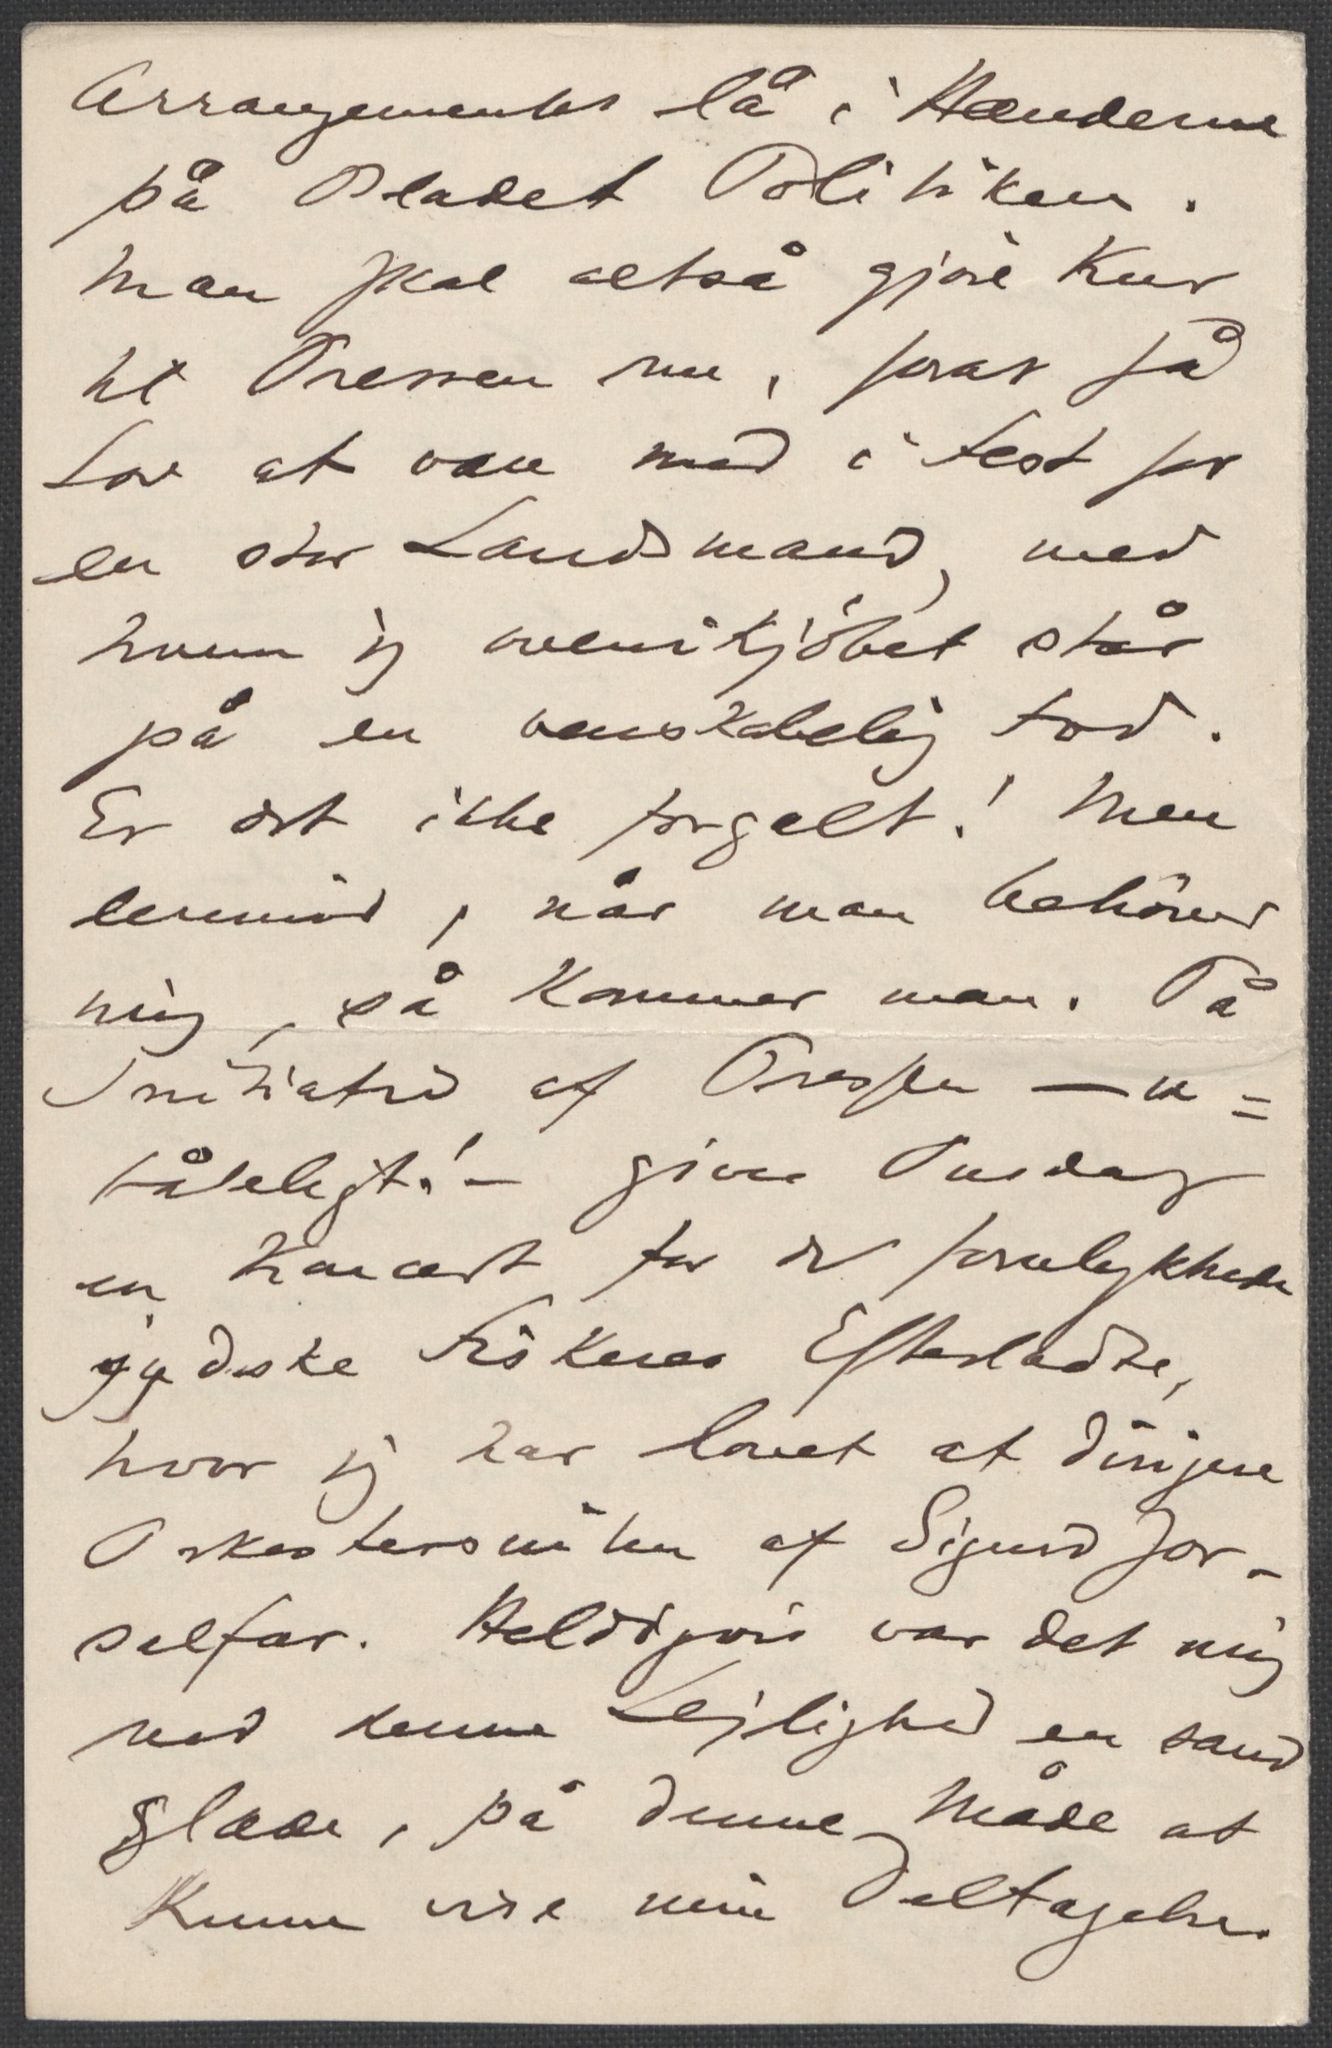 Arrangementet lå i Hænderne
på Bladet Politiken.
Man skal altså gjøre Kur
til Pressen nu, forat få
Lov at være med i Fest for
en stor Landsmand, med
hvem jeg ovenikjöbet står
på en venskabelig Fod.
Er det ikke forgalt! Men
lermed, når man behöver
mig, så kommer man. På
Initiativ af Pressen — u=
tåleligt! – gives Onsdag
en Koncert for de forulykkede
jydske Fiskeres Efterladte,
hvor jeg har lovet at dirigere
Orkestersuiten af Sigurd Jor-
salfar. Heldigvis var det mig
ved denne Lejlighed en sand
Glæde, på denne Måde at
kunne vise min Deltagelse.